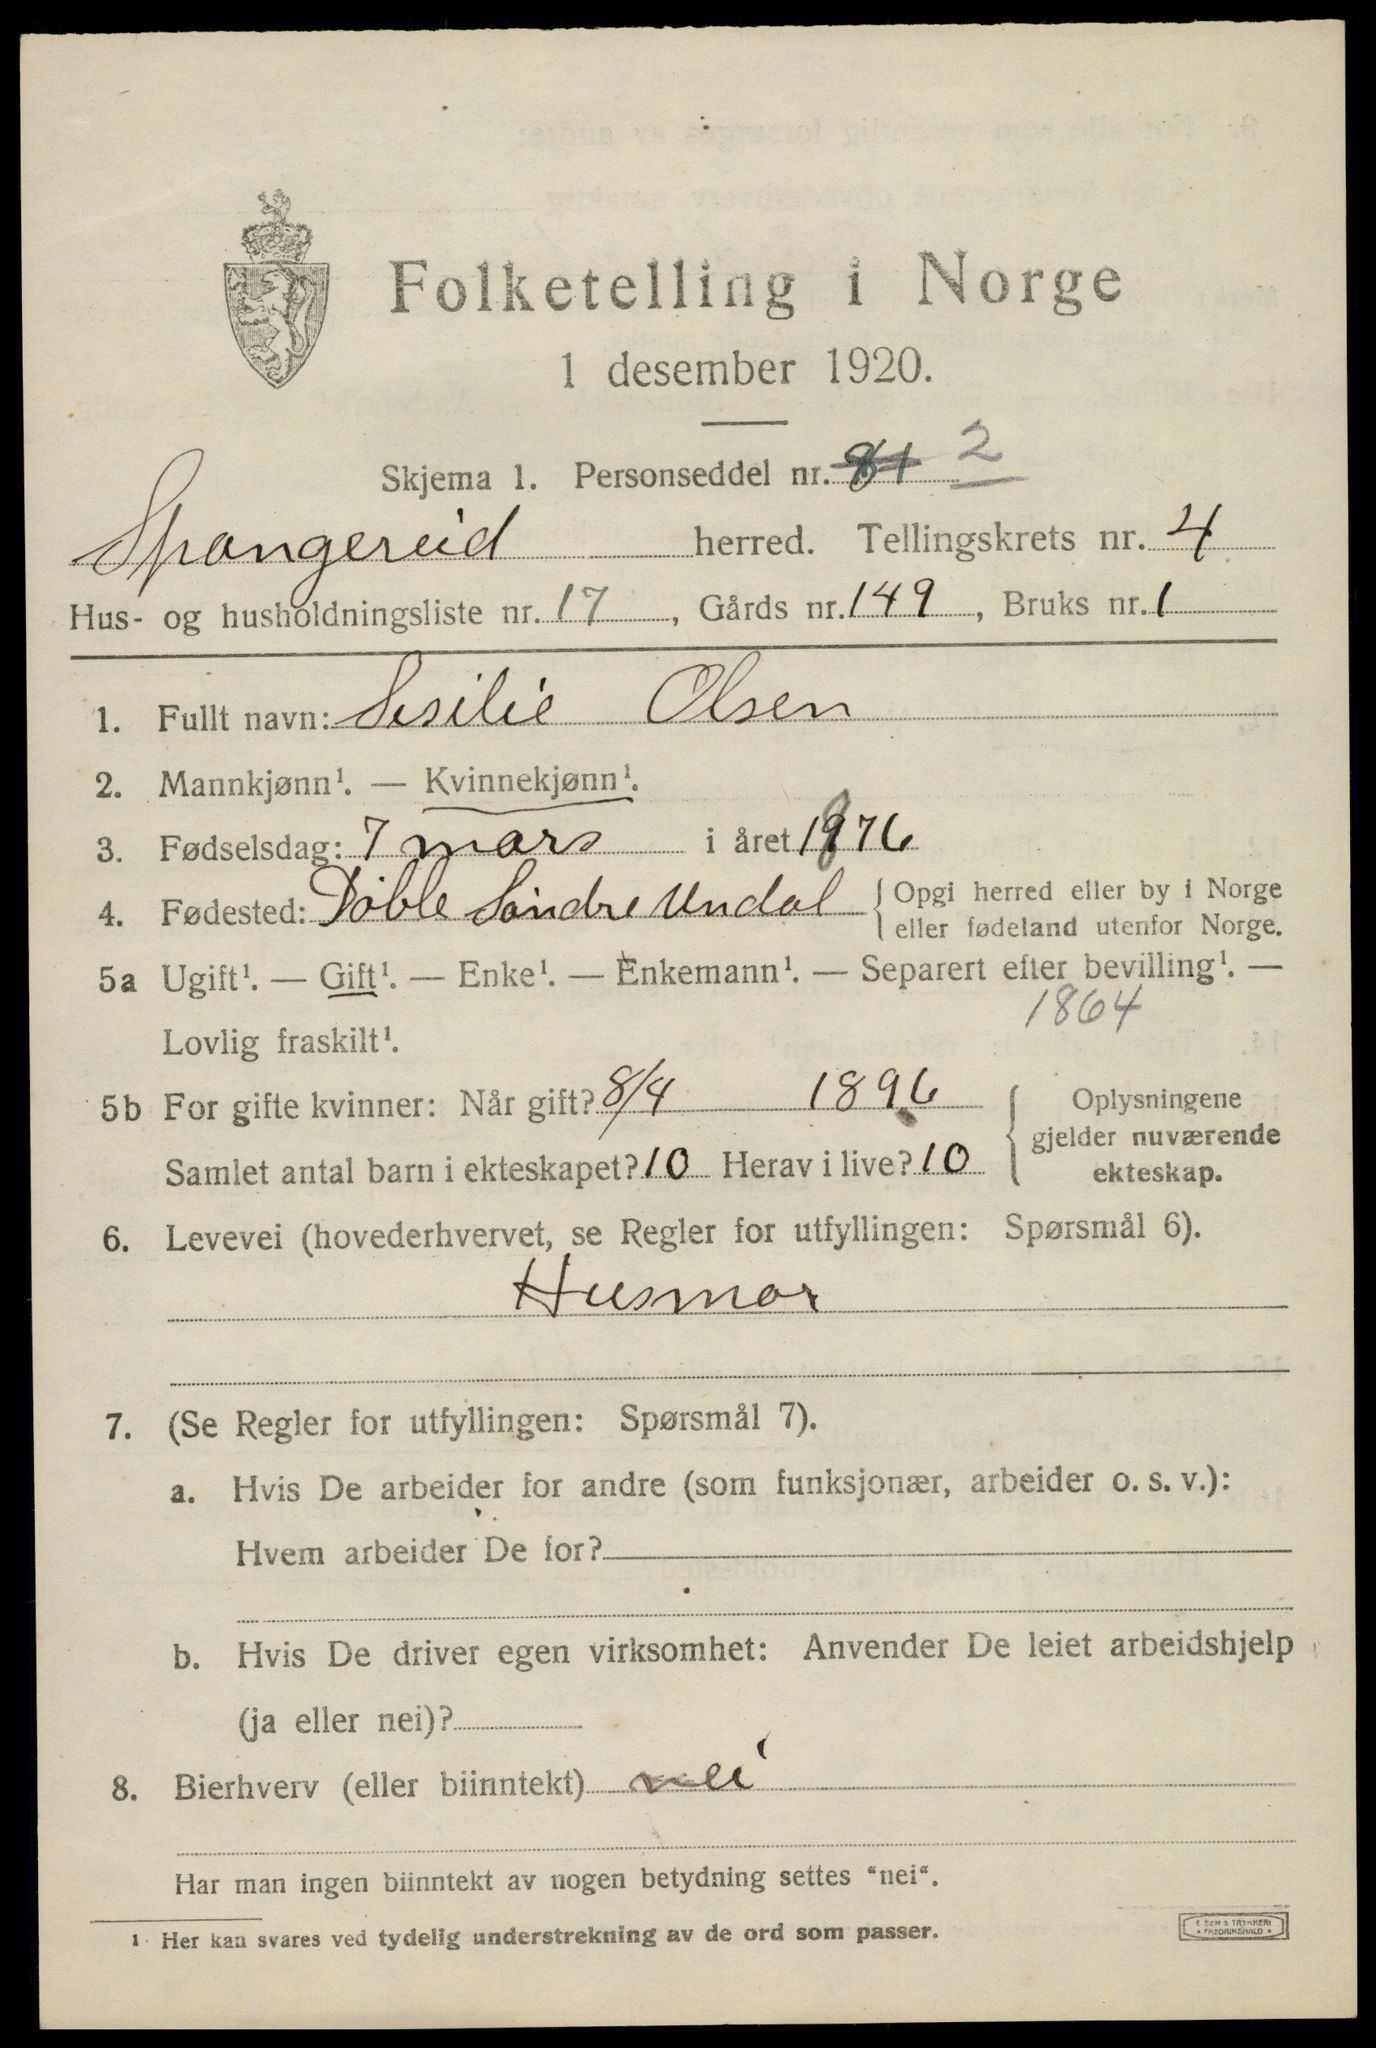 Folketelling i Norge
1 desember 1920.
Skjema 1. Personseddel nr. 81 2
Spangereid herred. Tellingskrets nr. 4
Hus- og husholdningsliste nr. 17, Gårds nr. 149, Bruks nr. 1
1. Fullt navn: Sesilie Olsen
2. Mannkjønn¹. — Kvinnekjønn¹.
3. Fødselsdag: 7 mars i året 1876
4. Fødested: Döble Söndre Undal { Opgi herred eller by i Norge
eller fødeland utenfor Norge.
5a Ugift¹. — Gift¹. — Enke¹. — Enkemann¹. — Separert efter bevilling¹. —
1864
Lovlig fraskilt¹.
5b For gifte kvinner: Når gift? 8/4 1896 { Oplysningene
gjelder nuværende
Samlet antal barn i ekteskapet? 10 Herav i live? 10 ekteskap.
6. Levevei (hovederhvervet, se Regler for utfyllingen: Spørsmål 6).
Husmor
7. (Se Regler for utfyllingen: Spørsmål 7).
a. Hvis De arbeider for andre (som funksjonær, arbeider o. s. v.):
Hvem arbeider De for?
b. Hvis De driver egen virksomhet: Anvender De leiet arbeidshjelp
(ja eller nei)?
8. Bierhverv (eller biinntekt) nei
Har man ingen biinntekt av nogen betydning settes "nei".
1 Her kan svares ved tydelig understrekning av de ord som passer.
TRYKKERI
FREDRIKSHALD